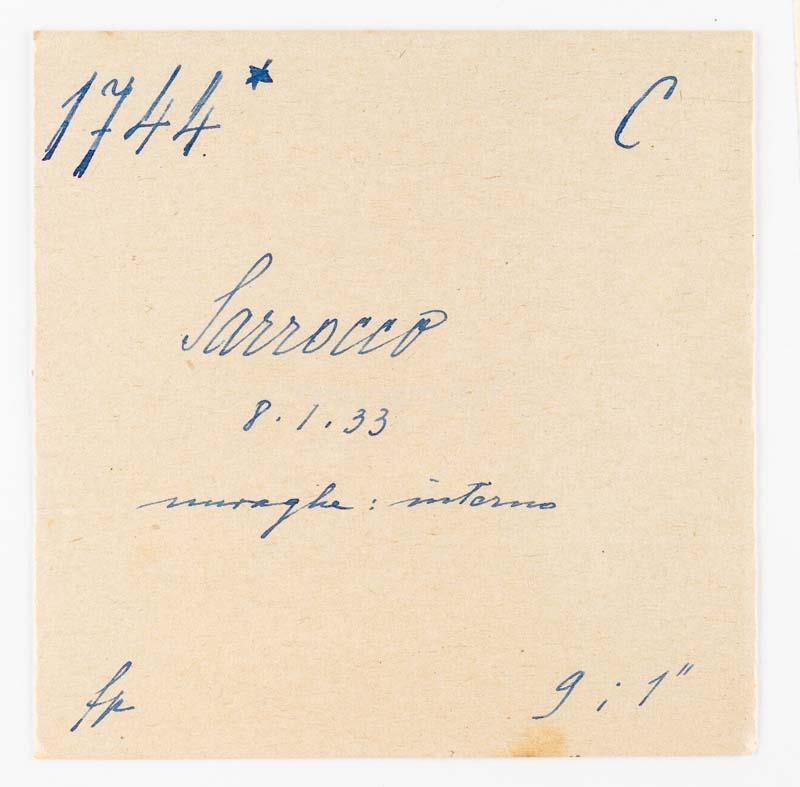 1744* C
Sarrocco
8.1.33
nuraghe: interno
fp 9 ; 1"